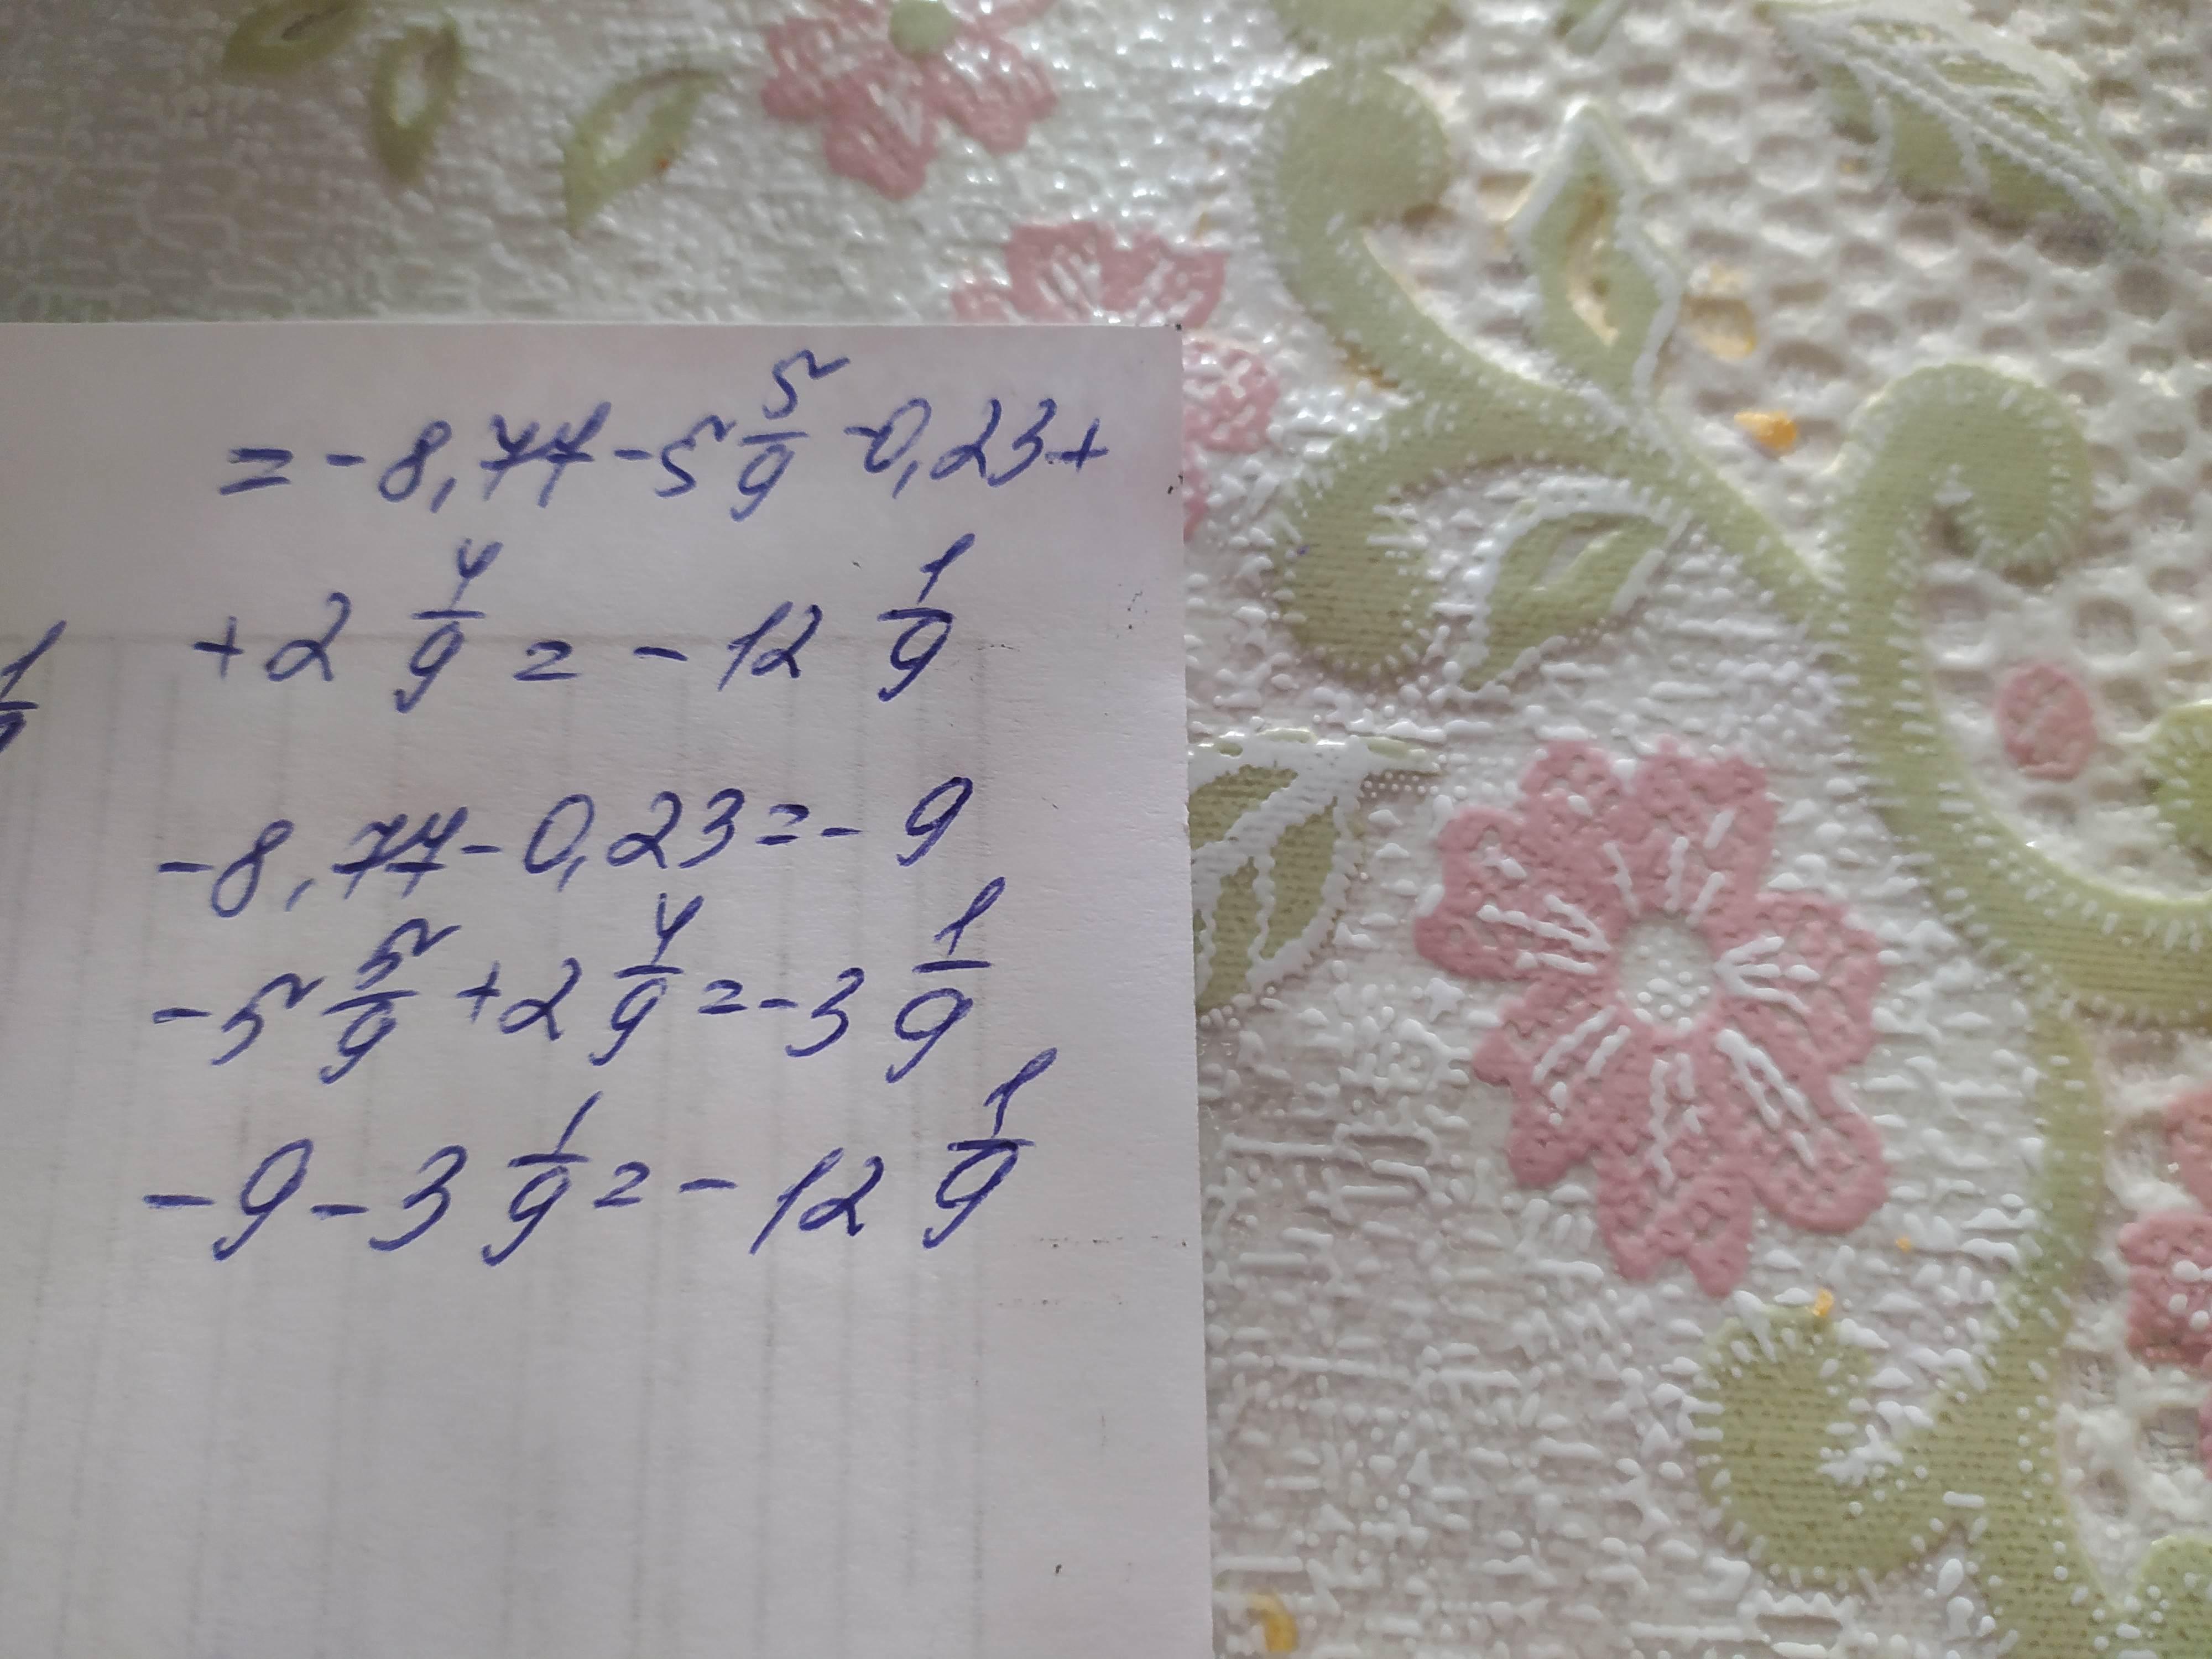 = - 8,77 - 5 5/9 - 0,23 +
+ 2 4/9 = - 12 1/9
- 8,77 - 0,23 = - 9
- 5 5/9 + 2 4/9 = - 3 1/9
- 9 - 3 1/9 = - 12 1/9